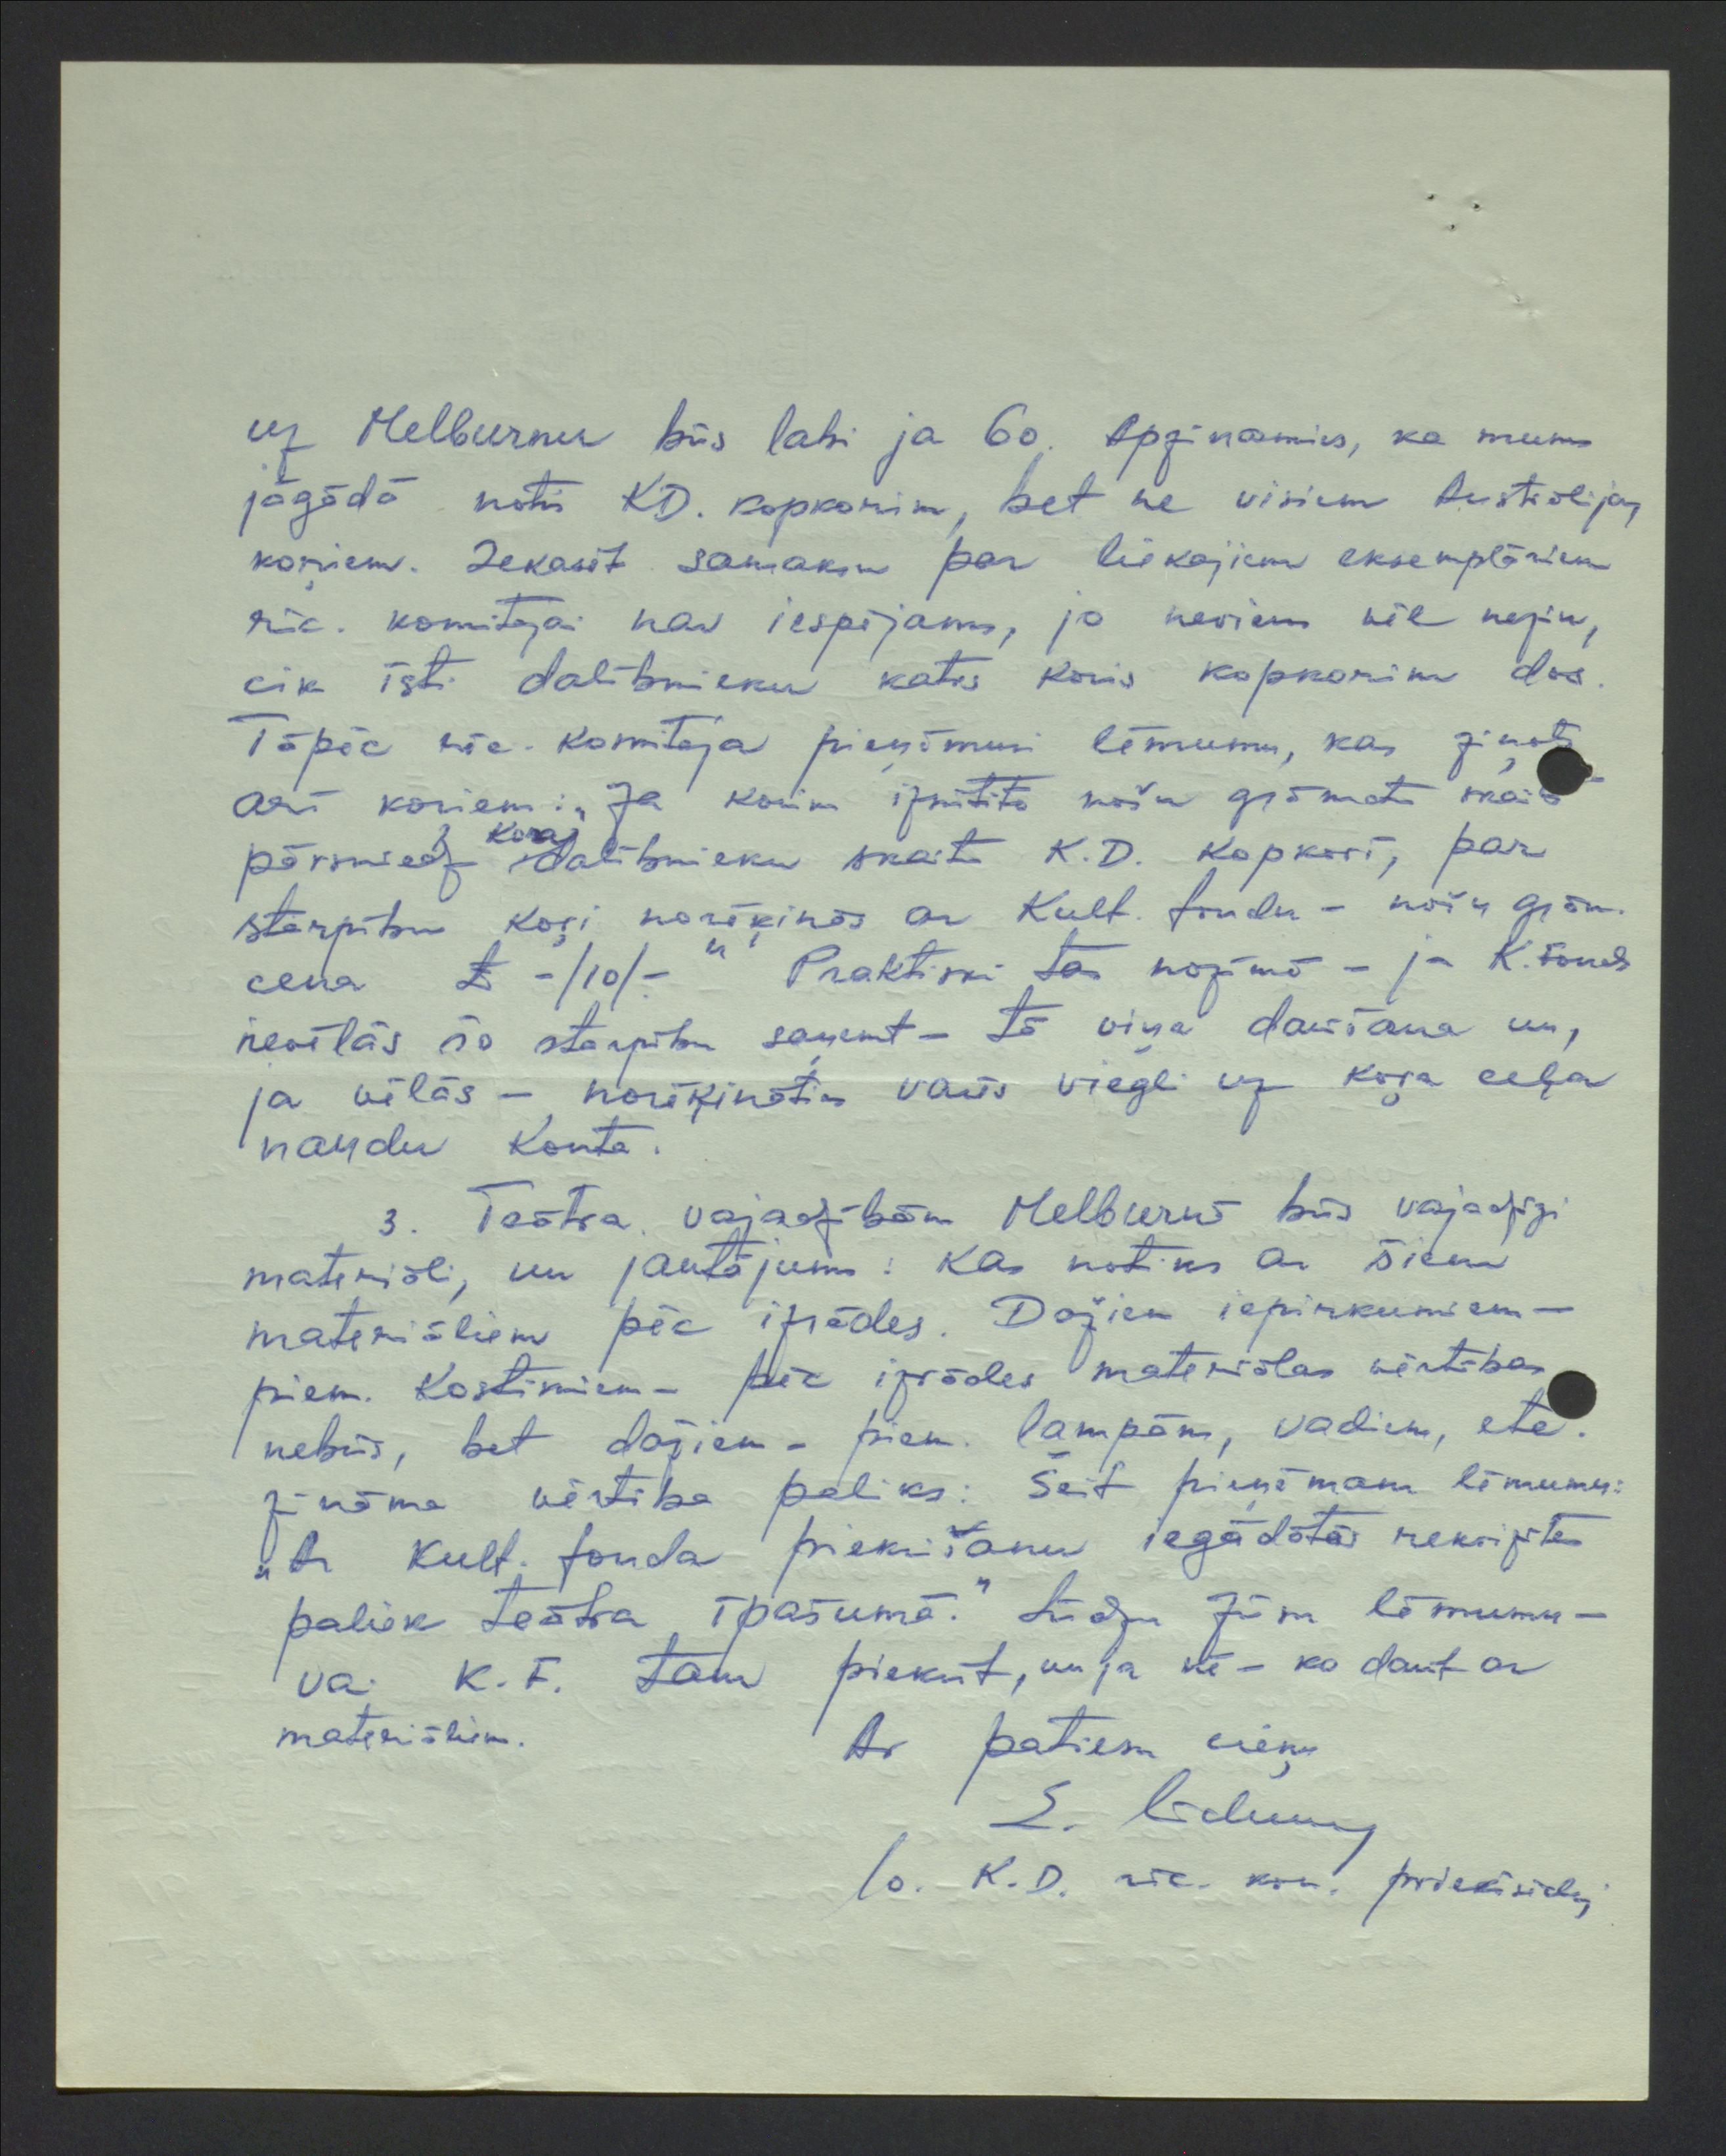 uz Melburnu būs labi ja 60. Apzinamies, ka mums
jāgādā notis KD. kopkorim, bet ne visiem Austrālijas
koriem. Iekasēt samaksu par liekajiem eksemplāriem
rīc. komitejai nav iespējams, jo neviens vēl nezin,
cik īsti dalībnieku katrs koris kopkorim dos.
Tāpēc rīc. Komiteja pieņēmusi lēmumu, kas ziņots
arī koriem: „Ja korim izsūtīto nošu grāmatu skaits
pārsniedz Kora dalībnieku skaitu K.D. Kopkorī, par
starpību koŗi norēķinās ar Kult. fondu - nošu grām.
cena £ -/10/- " Praktiski tas nozīmē - ja K. fonds
nevēlās šo starpību saņemt - tā viņa darīšana un,
ja vēlās - norēķināties varēs viegli uz koŗa ceļa
naudu Konta.
3. Teātra vajadzībām Melburnā būs vajadzīgi
materiāli, un jautājums: Kas notiks ar šiem
materiāliem pēc izrādes. Dažiem iepirkumiem -
piem. Kostimiem - pēc izrādes materiālas vērtības
nebūs, bet dažiem - piem. lampām, vadiem, etc.
zināma vērtība paliks: Šeit pieņēmām lēmumu:
„Ar Kult. fonda piekrišanu iegādātās rekvizītes
paliek teātra īpašumā." Lūdzu Jūsu lēmumu -
vai K.F. tam piekrīt, un ja nē - ko darīt ar
materiāliem.
Ar patiesu cieņu
E.
10. K.D. rīc. kom. priekšsēdis